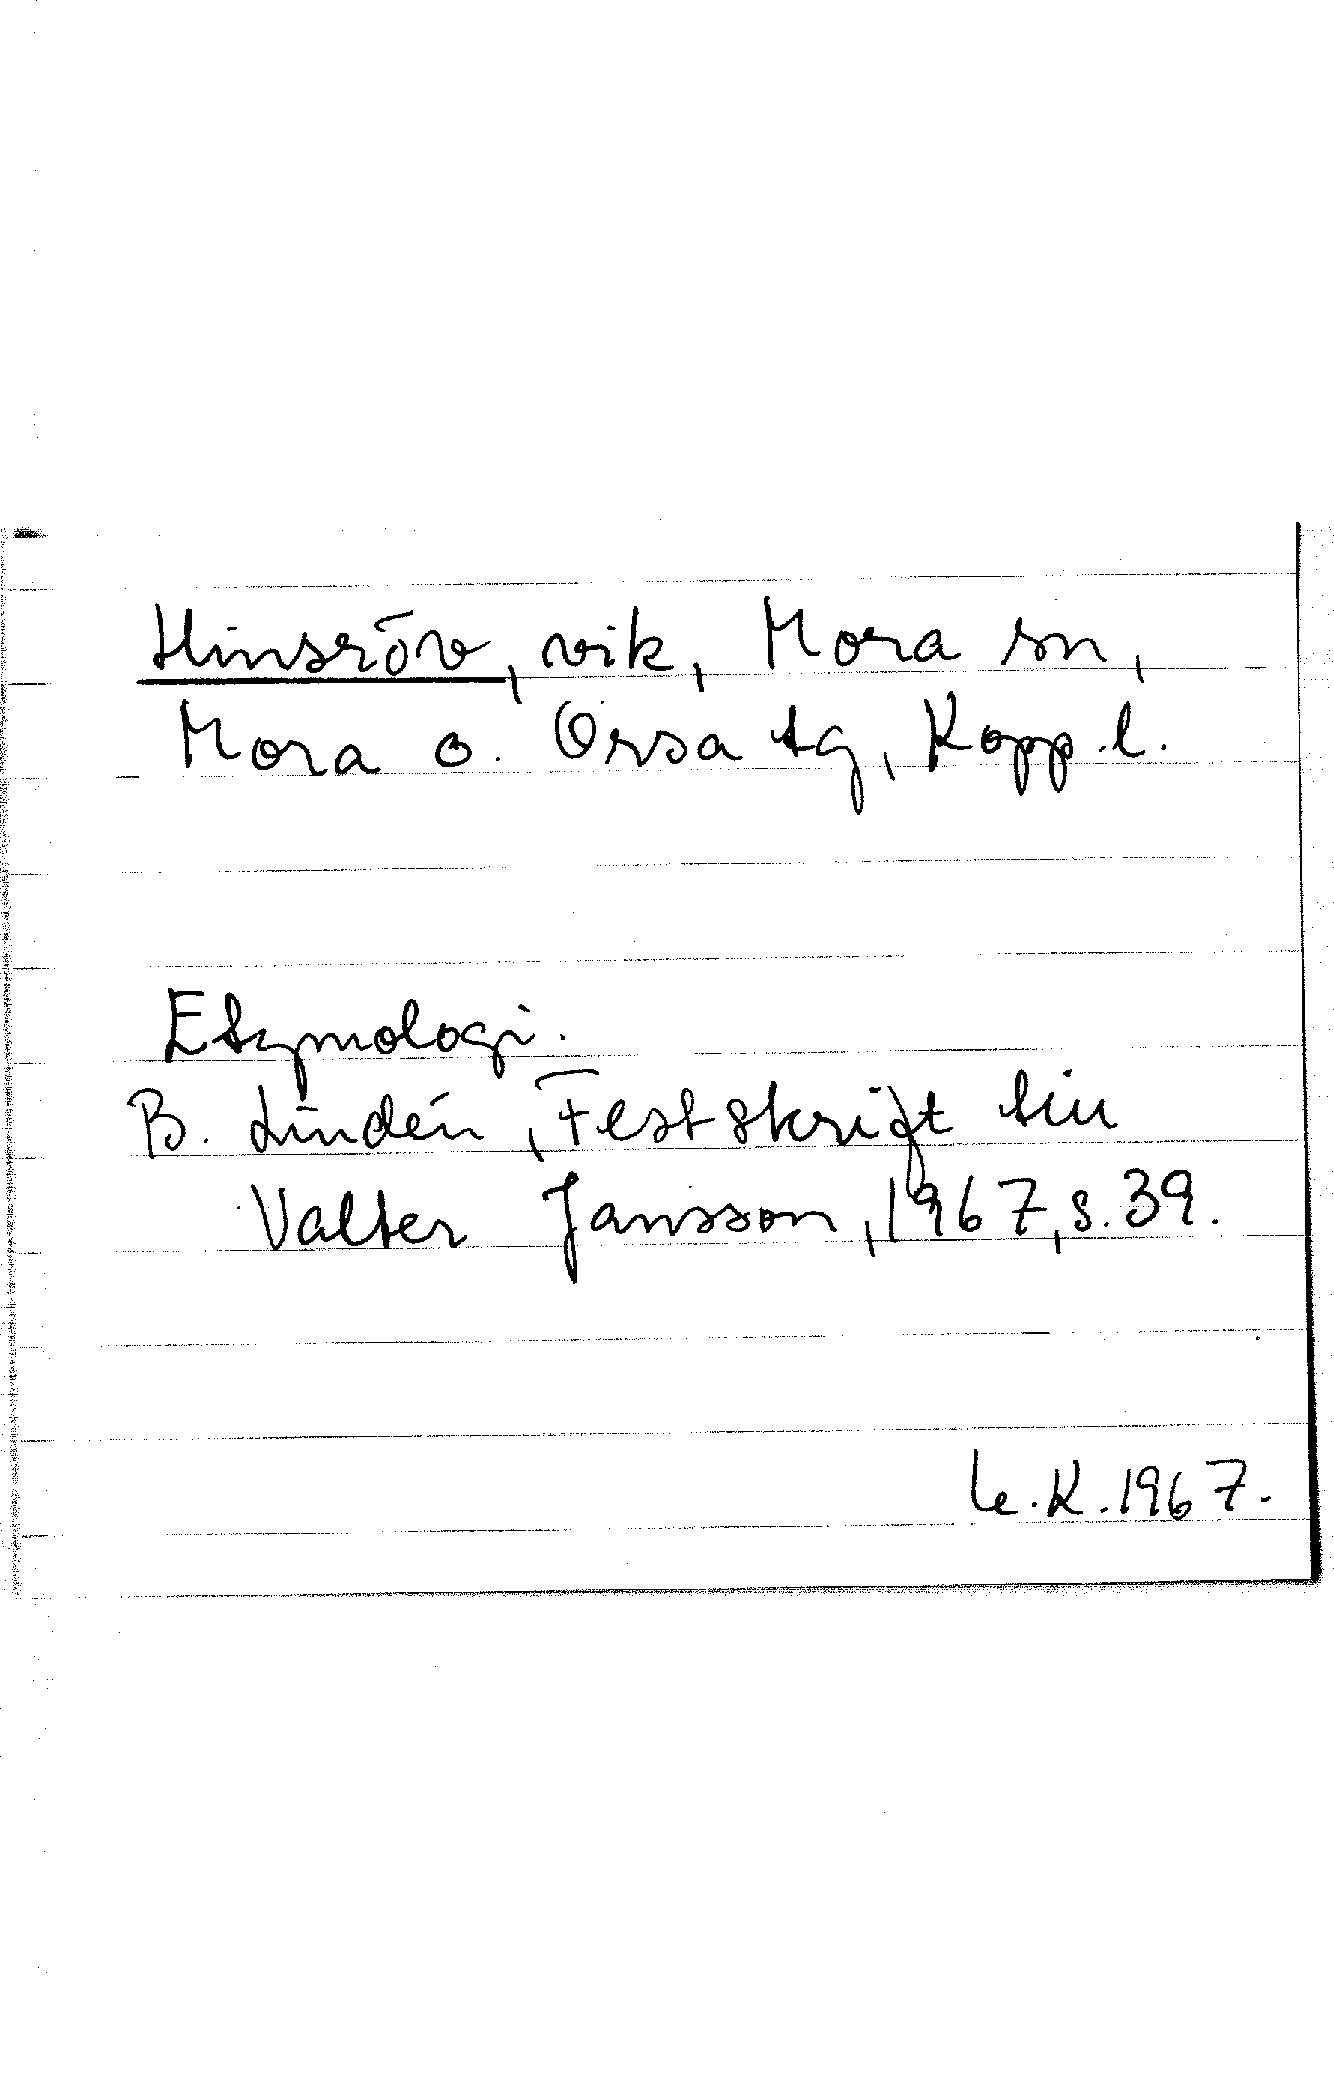 Hinsröv, vik, Mora sn,
Mora o. Orsa tg, Kopp.l.
Etymologi.
B. Lindén, Festskrift till
Valter Jansson, 1967, s. 39.
L.K. 1967.